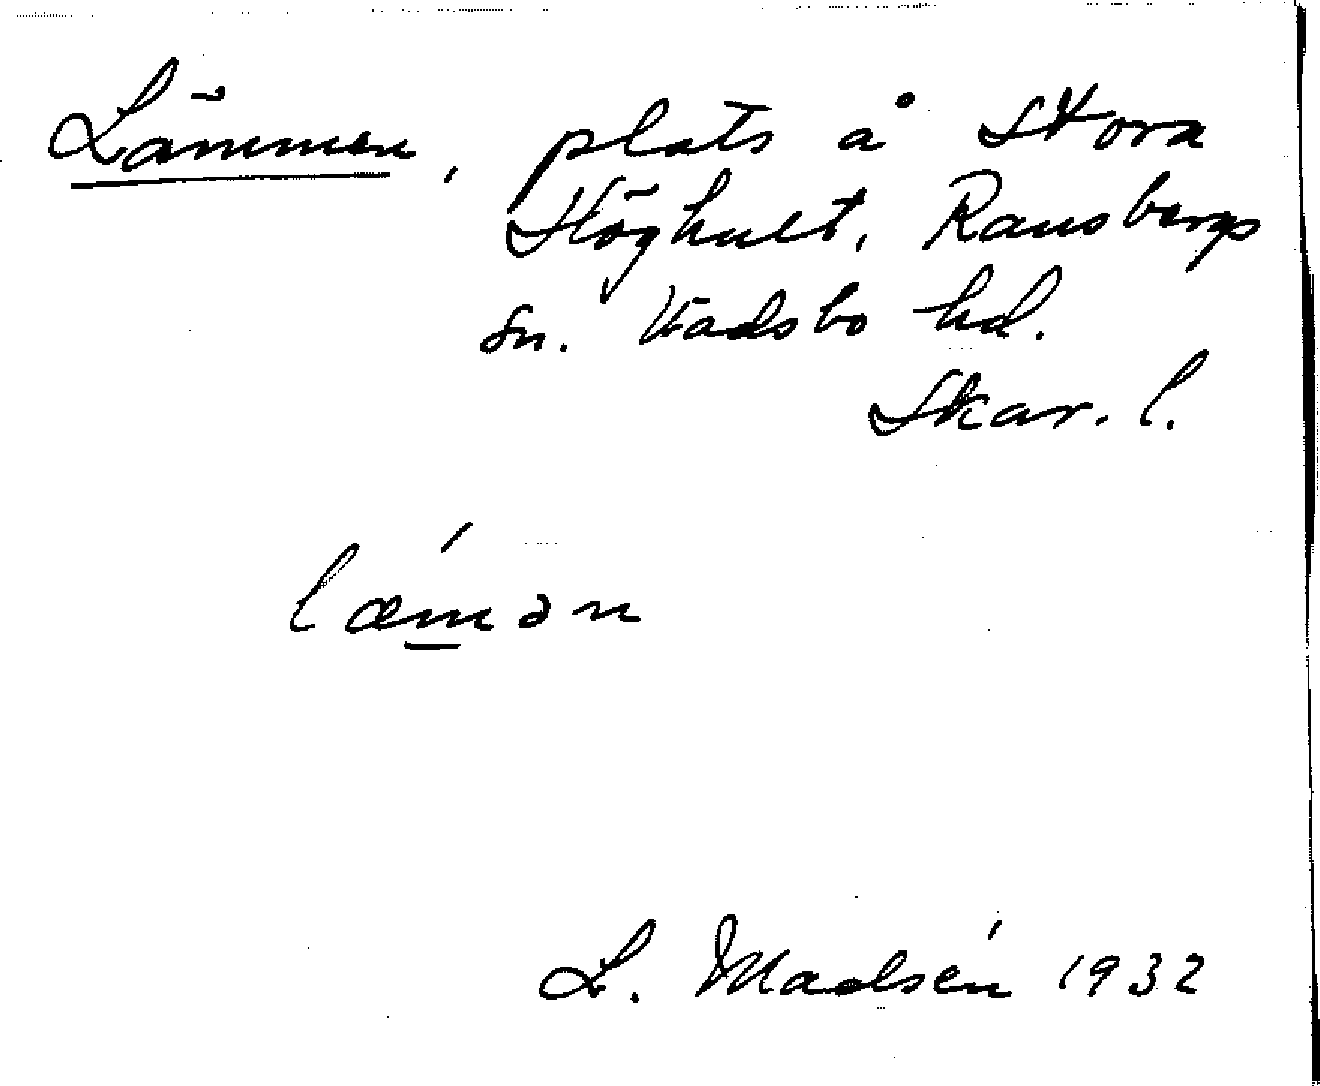 Lämmen, plats å Stora
Höghult, Ransbergs
sn. Vadsbo hd.
Skar. l.
lǽm̲ən
L. Madsén 1932